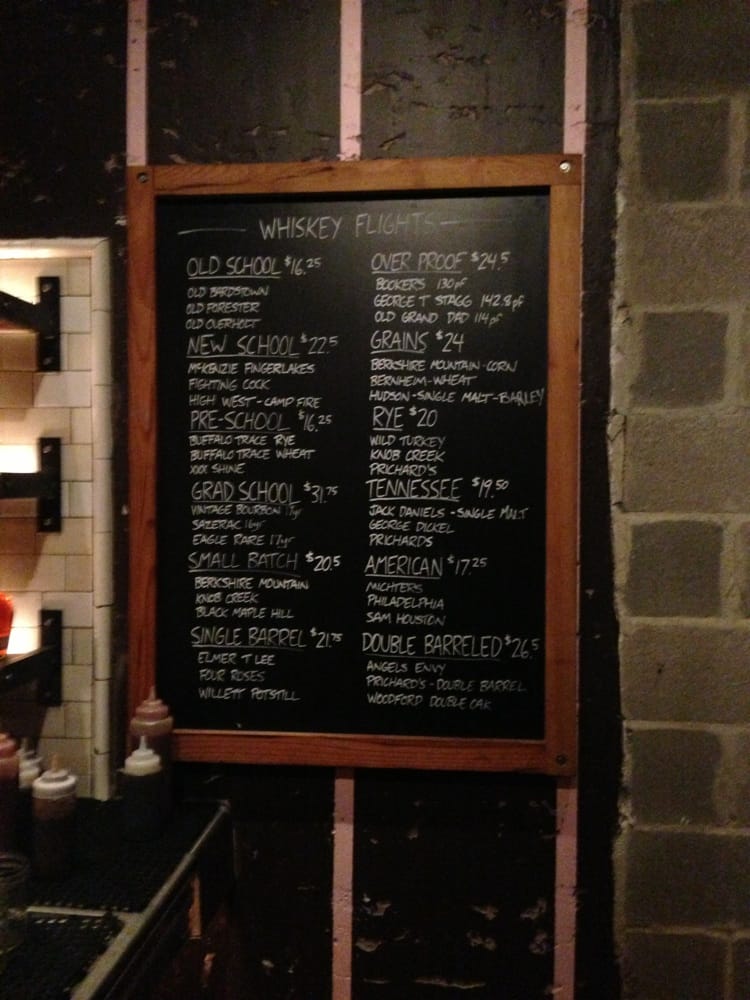 WHISKEY FLIGHTS
OLD SCHOOL $16.25
OLD BARDSTOWN
OLD FORESTER
OLD OVERHOLT
NEW SCHOOL $22.5
MCKENZIE FINGERLAKES
FIGHTING COCK
HIGH WEST - CAMP FIRE
PRE-SCHOOL $16.25
BUFFALO TRACE RYE
BUFFALO TRACE WHEAT
XXX SHINE
GRAD SCHOOL $31.75
VINTAGE BOURBON 17yr
SAZERAC 18yr
EAGLE RARE 17yr
SMALL BATCH $20.5
BERKSHIRE MOUNTAIN
KNOB CREEK
BLACK MAPLE HILL
SINGLE BARREL $21.75
ELMER T LEE
FOUR ROSES
WILLETT POTSTILL
OVER PROOF $24.5
BOOKERS 130pf
GEORGE T STAGG 142.8pf
OLD GRAND DAD 114pf
GRAINS $24
BERKSHIRE MOUNTAIN-CORN
BERNHEIM-WHEAT
HUDSON-SINGLE MALT-BARLEY
RYE $20
WILD TURKEY
KNOB CREEK
PRICHARD'S
TENNESSEE $19.50
JACK DANIELS - SINGLE MALT
GEORGE DICKEL
PRICHARDS
AMERICAN $17.25
MICHTERS
PHILADELPHIA
SAM HOUSTON
DOUBLE BARRELED $26.5
ANGELS ENVY
PRICHARD'S - DOUBLE BARREL
WOODFORD DOUBLE OAK